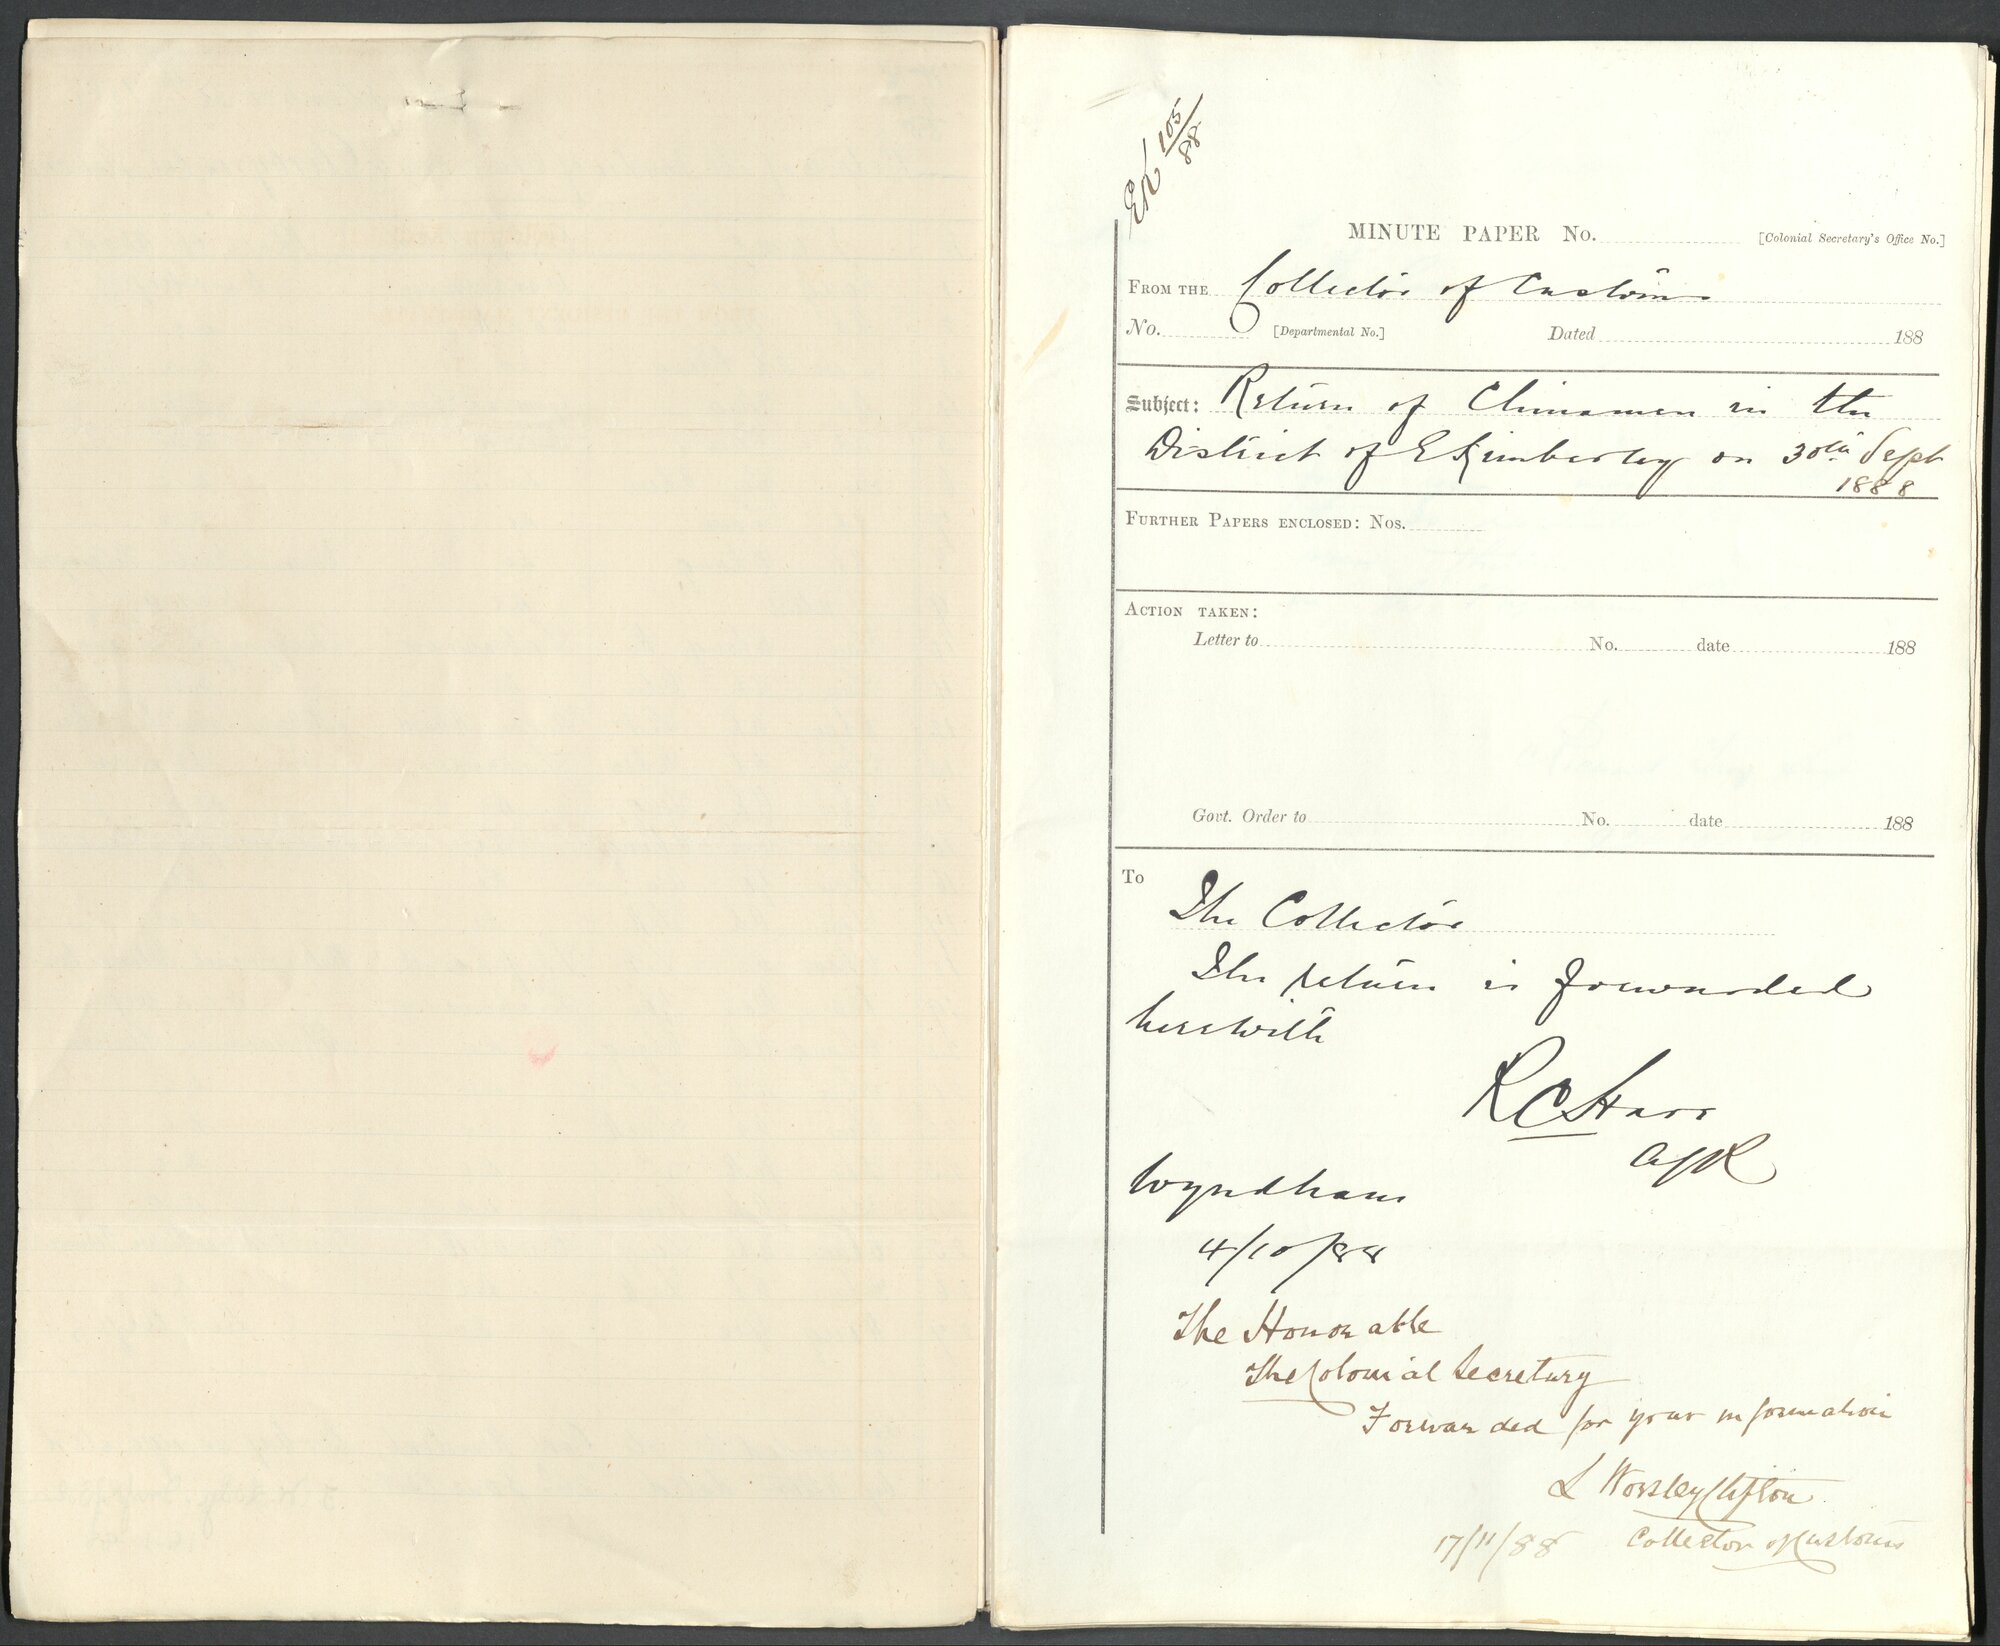 EK 105/88
MINUTE PAPER No. [Colonial Secretary's Office No.]
FROM THE Collector of Customs
No. [Departmental No.] Dated 188
Subject: Return of Chinamen in the
District of E Kimberley on 30th Sept
1888
FURTHER PAPERS ENCLOSED: Nos.
ACTION TAKEN:
Letter to No. date 188
Govt. Order to No. date 188
To
The Collector
The return is forwarded
herewith
R C Hare
Wyndham
4/10/88
The Honorable
The Colonial Secretary
Forwarded for your information
L Worsley Clifton
17/11/88 Collector of Customs